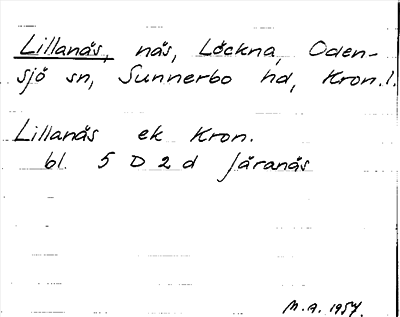 Lillanäs, näs, Löckna, Oden-
sjö sn, Sunnerbo hd, Kron. l.
Lillanäs ek Kron.
bl. 5 D 2 d Järanäs
M.A. 1954.